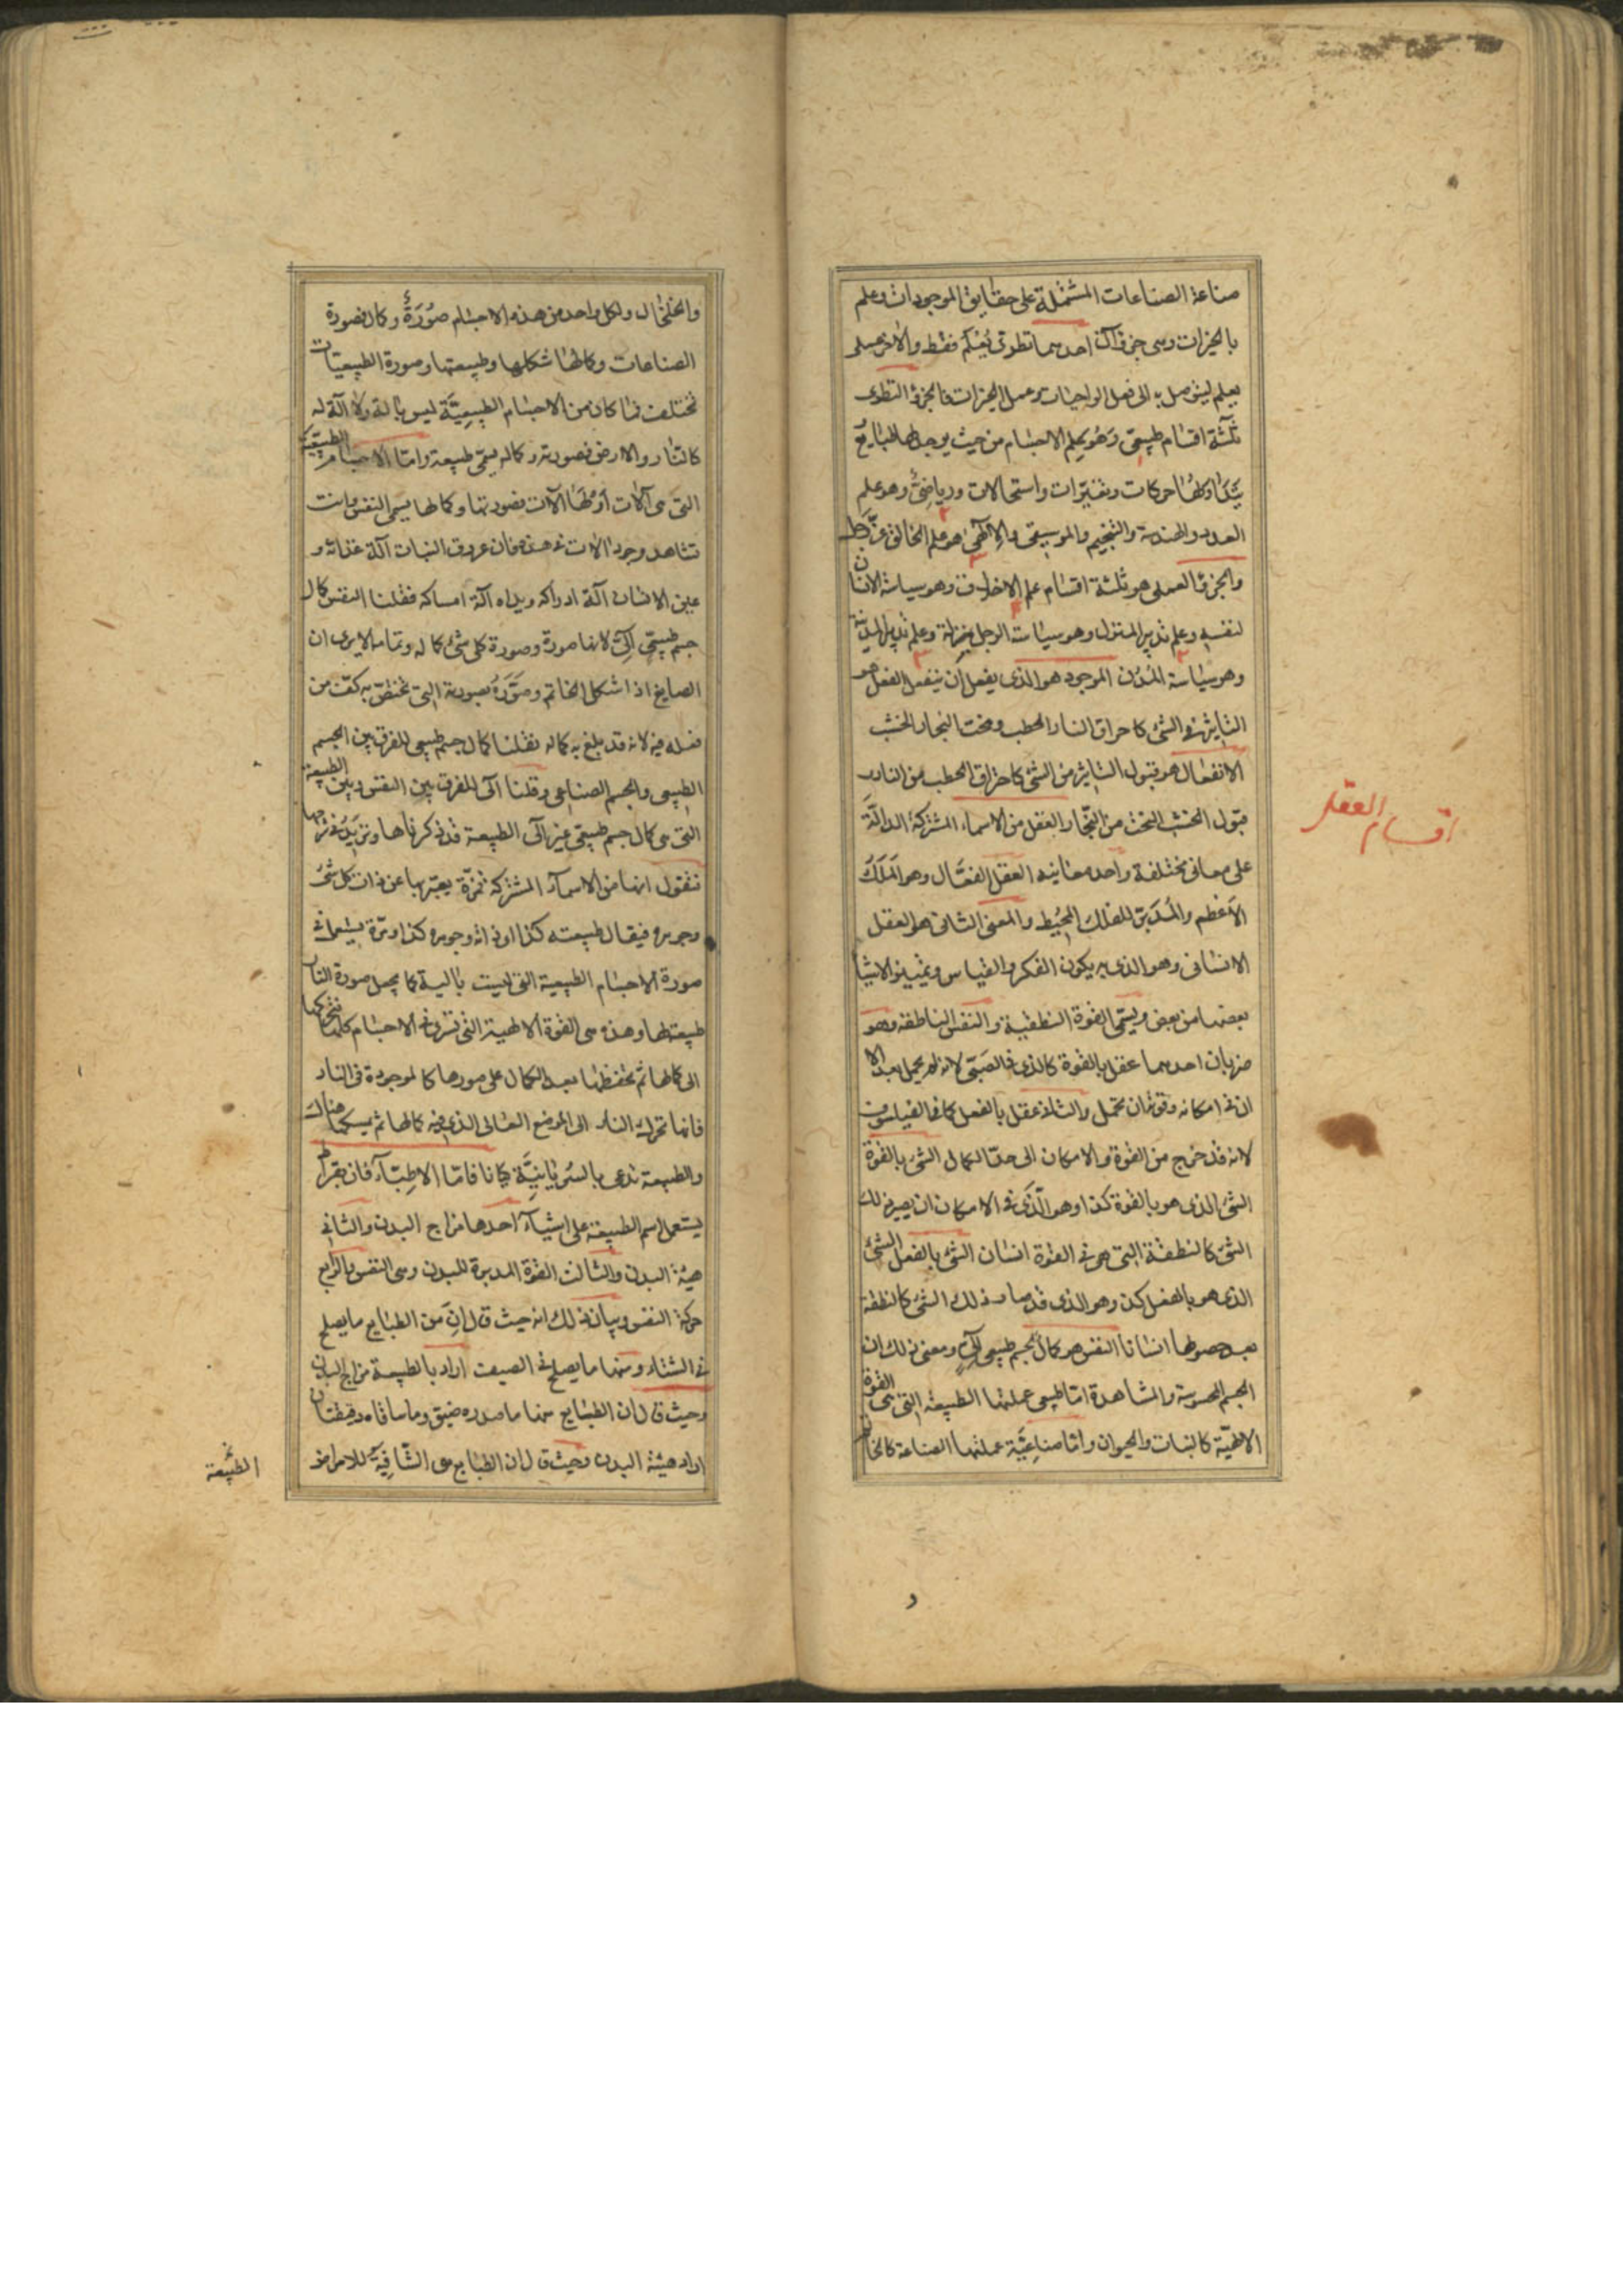 صناعة الصناعات المشتملة على حقايق الموجودات وعلم
بالخيرات وهى جزءآن احدهما نظرى يُعْلَم فقط والاخر عملى
يعلم ليتوصل به الى فعل الواجبات وعمل الخيرات فالجزؤ النظرى
ثلٰثة اقسام طبيعى وَهُو علم الاجسام من حيث يوجد لها طبايعُ
واحركات وتغيّرات واستحالات ورياضىٌّ وهو علم
العدد والهندسة والتنجيم والموسيقى والالٓهى هو علم الخالق عزّ وجل
والجزؤ العملى هو ثلثة اقسام علم الاخلاق وهو سياسة الانسان
لنفسه وعلم تدبير المنزل وهو سياسة الرجل منزله وعلم تدبير المدينة
وهو سياسة المُدُن الموجود هو الذى يفعل أن ينفعل الفعل هو
التاثير فى الشئ كاحراق النار الحطب ونحت النجار الخشب
الانفعال هو قبول التاثير من الشئ كاحتراق الحطب من النار و
قبول الخشب النحت من النجّار العقل من الاسماء المشتركة الدالّة
على معانى مختلفة واحد معانيه العقل الفعّال وهو المَلَكُ
الاعظم والمُدَبّر للفلك المحيُط والمعنى الثانى هو العقل
الانسانى وهو الذى به يكون الفكر والقياس وتمييز الاشيا
بعضها من بعض ويسمّى القوة النطقية والنفس الناطقة وهو
ضربان احدهما عقل بالقوة كالذى فى الصَبىّ لانه لم يكمل بعد الا
ان فى امكانه وقوته ان يكمل والثانى عقل بالفعل كما فى الفيلسوف
لانه قد خرج من القوة والامكان الى حدّ الكمال الشئ بالقوة
الشئ الذى هو بالقوة كذا وهو الّذى فى الامكان ان يصير ذلك
الشئ كالنطفة التى هى فى القوة انسان الشئ بالفعل الشئ
الذى هو بالفعل كذا وهو الذى قد صار ذلك الشئ كالنطفة
بعد حصولها انسانا النفس هو كمالٌ لجسم طبيعى آلىٍّ ومعنى ذلك ان
الجسم المحسوسة والمشاهدة امّا طبيعى عملتها الطبيعة التى هى القوة
الالهيّة كالنبات والحيوان وامّا صناعيَّة عملتها الصناعة كالخاتم
اقسام العقل
والخلخال ولكل واحد من هذه الاجسام صُوْرَةٌ وكمال فصورة
الصناعات وكمالها شكلها وطبيعتها وصورة الطبيعيّات
تختلف فما كان من الاجسام الطبيعيَّة ليس بآلة ولا آلة له
كالنار والارض فصورته وكماله يسمّى طبيعة وامّا الاجسام الطبيعيّة
التى هى آلات أو لهَا آلات فصورتها وكمالها يسمى النفس وانت
تشاهد وجود الالات فى هذه فان عروق النبات آلة غذائه و
عين الانسان آلة ادراكه ويداه آلة امساكه فقلنا النفس كمال
جسم طبيعى آلىّ لانها صورة وصورة كل شئ كماله وتمامه الا يرى ان
الصايغ اذا شكل الخاتم وصَوَّرَهُ بصورته التى تختصّ به كفّ من
فعله فيه لانه قد بلغ به كماله فقلنا كمال جسم طبيعى للفرق بين الجسم
الطبيعى والجسم الصناعى وقلنا آلى للفرق بين النفس وبين الطبيعة
التى هى كمال جسم طبيعى غير آلى الطبيعة قد ذكرناها ونزيدُ فى شرحها
فنقول انها من الاسمآء المشتركة فمرّة يعبّر بها عن ذات كل شئ
وجوهره فيقال طبيعته كذا او ذاته وجوهره كذا ومرّة يشتمل فى
صورة الاجسام الطبيعية التى ليست بآلية كما يجعل صورة النار
طبيعة لها وهذه هى القوة الالهية التى تسرى فى الاجسام كلها فتحركها
الى كمالها ثم تحفظها بعد الكمال على صورها كالموجودة فى النار
فانها تحرك النار الى الموضع العالى الذى فيه كمالها ثم يمسكها هناك
والطبيعة تدعى بالسُريانيَّة كيانا فامّا الاطبّآء فان بقراط
يستعمل اسم الطبيعة على اشيآء احدها مزاج البدن والثانى
هيئة البدن والثالث القوة المدبرة للبدن وهى النفس والرابع
حركة النفس وبيان ذلك انه حيث قال انّ من الطبايع ما يصلح
فى الشتاء ومنها ما يصلح فى الصيف اراد بالطبيعة مزاج البدن
وحيث قال ان الطبايع منها ما صدره ضيق وما ساقاه دقيقتان
اراد هيئة البدن وحيث قال ان الطبايع هى الشّافيةُ للامراض
الطبيعة